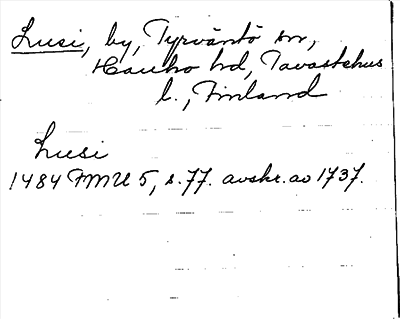 Lusi, by, Tyrväntö sn,
Hauho hd, Tavastehus
l., Finland
Lusi
1484 FMU 5, s. 77. avskr. av 1737.